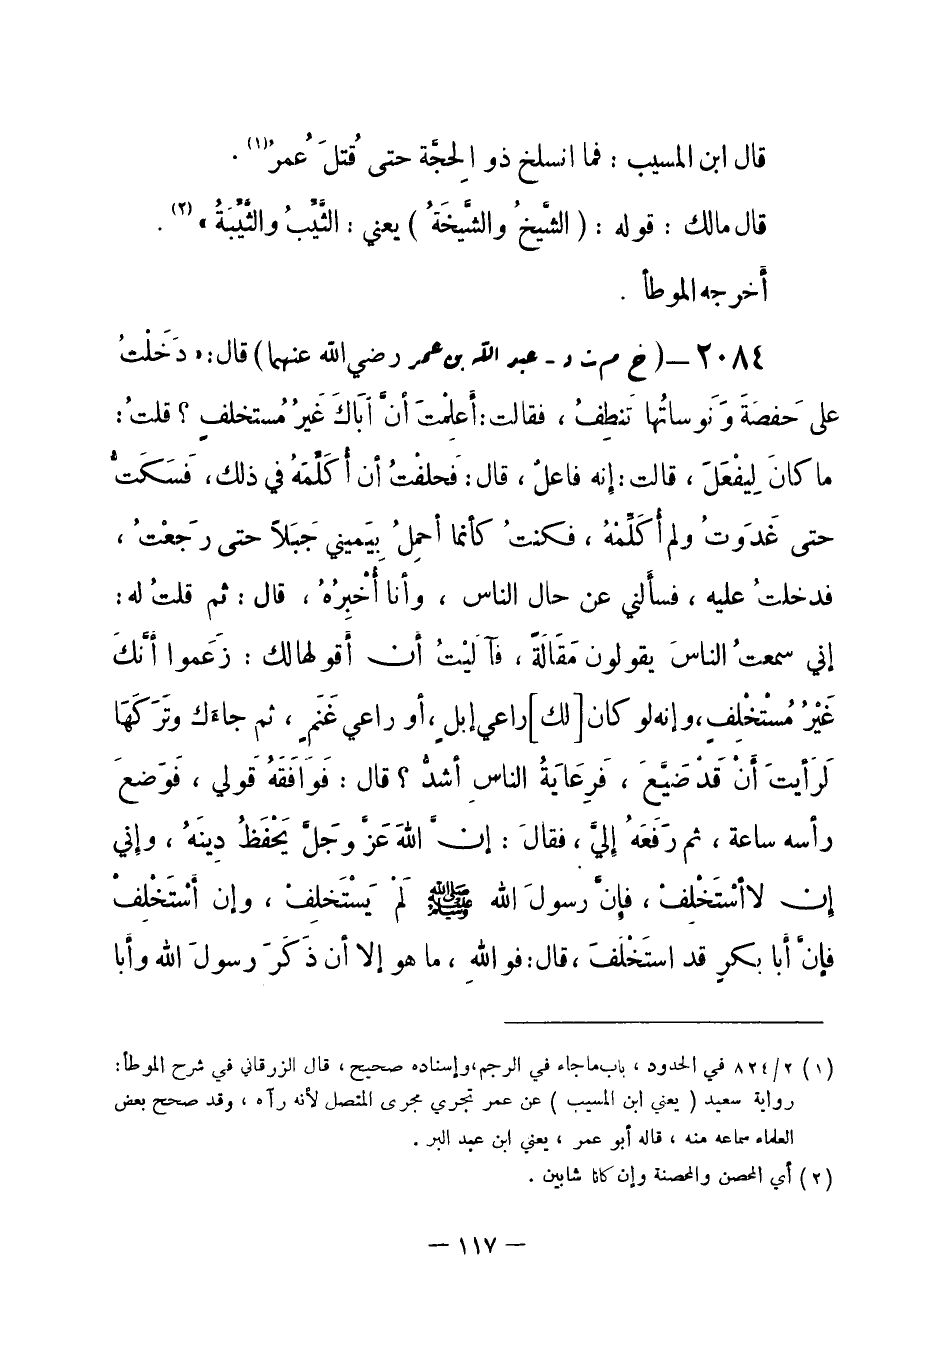 قال ابن المسيب : فما انسلخ ذو الِحجَّة حتى ُقتلَ ُعمرُ(١) .
قال مالك : قوله : ( الشَّيخُ والشَّيخَةُ ) يعني : الثَّيِّبُ والثَّيِّبَةُ » (٢) .
أخرجه الموطأ .
٢٠٨٤ – ( خ م ت د - عبد الله بن عمر رضي الله عنهما ) قال : « دَخَلْتُ
على حَفصَةَ وَنَوساتُها تَنطِفُ ، فقالت : أَعلِمْتَ أنَّ أَبَاكَ غَيرُ مُستخلفٍ ؟ قلتُ :
ما كانَ لِيفْعَلَ ، قالت : إنه فاعلٌ ، قال : فَحلفْتُ أن أُكَلِّمَهُ في ذلك ، فَسَكَتُّ
حتى غَدَوتُ ولم أُكَلِّمْهُ ، فكنتُ كأنما أحمِلُ بِيَميني جَبَلاً حتى رَجَعْتُ ،
فدخلتُ عليه ، فسألني عن حال الناس ، وأنا أُخْبِرُهُ ، قال : ثم قلتُ له :
إني سمعتُ الناسَ يقولون مَقَالَةً ، فآلَيْتُ أن أقولها لك : زَعَموا أنَّكَ
غَيْرُ مُسْتَخْلِفٍ ، وإنه لو كان [ لك ] راعي إبلٍ ، أو راعي غَنَمٍ ، ثم جاءَك وتَرَكَهَا
لَرَأيتَ أَنْ قَدْ ضَيَّعَ ، فَرِعَايَةُ الناسِ أشدُّ ؟ قال : فَوَافَقَهُ قَولي ، فَوَضعَ
رأسه ساعة ، ثم رَفَعَهُ إليَّ ، فقالَ : إنَّ اللهَ عَزَّ وجَلَّ يَحْفَظُ دِينَهُ ، وإني
إن لا أسْتَخْلِفْ ، فإنَّ رسولَ الله ﷺ لَمْ يَسْتَخلِفْ ، وإن أَسْتَخْلِفْ
فإنَّ أبا بكرٍ قد استَخْلَفَ ، قال : فو اللهِ ، ما هو إلا أن ذَكَرَ رسولَ الله وأبا
(١) ٨٢٤/٢ في الحدود ، باب ماجاء في الرجم ، وإسناده صحيح ، قال الزرقاني في شرح الموطأ :
رواية سعيد ( يعني ابن المسيب ) عن عمر تجري مجرى المتصل لأنه رآه ، وقد صحح بعض
العلماء سماعه منه ، قاله أبو عمر ، يعني ابن عبد البر .
(٢) أي المحصن والمحصنة وإن كانا شابين .
– ١١٧ –